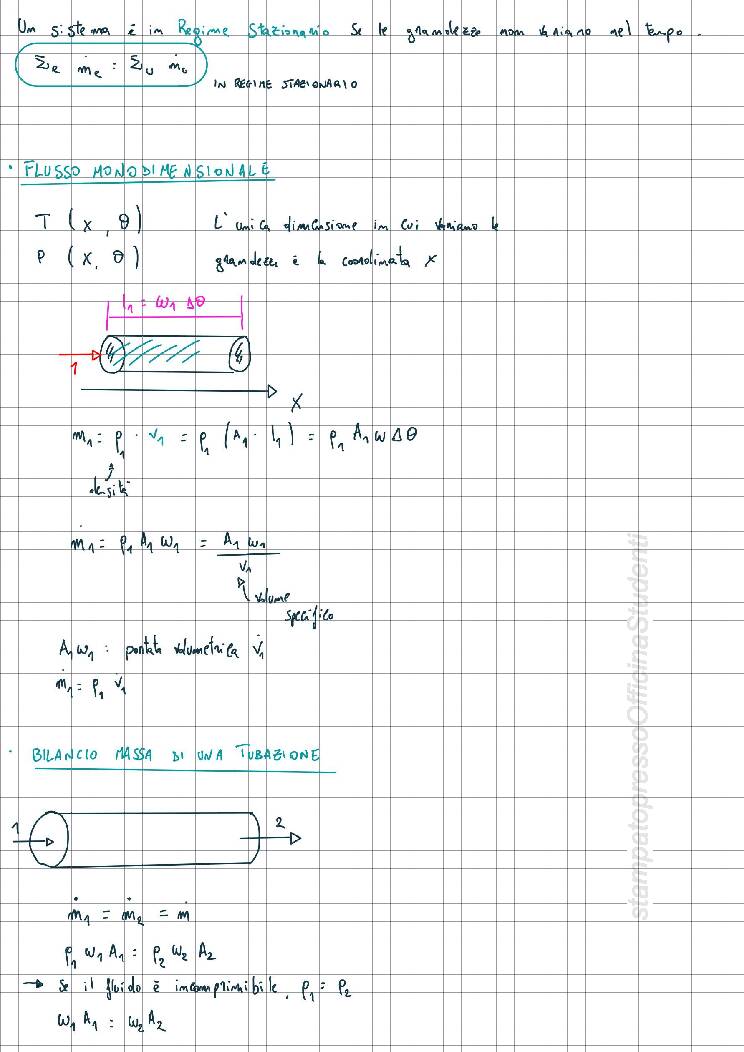 Un sistema è in Regime Stazionario se le grandezze non variano nel tempo.
Σe ṁe = Σu ṁu
IN REGIME STAZIONARIO
· FLUSSO MONODIMENSIONALE
T (x, θ) L'unica dimensione in cui variano le
P (x, θ) grandezze è la coordinata x
l1 = w1 Δθ
1
x
m1 = ρ1 · V1 = ρ1 (A1 · l1) = ρ1 A1 w Δθ
densità
ṁ1 = ρ1 A1 w1 = A1 w1 / v1
volume
specifico
A1 w1 : portata volumetrica V̇1
ṁ1 = ρ1 V̇1
· BILANCIO MASSA DI UNA TUBAZIONE
1 2
ṁ1 = ṁ2 = ṁ
ρ1 w1 A1 = ρ2 w2 A2
→ se il fluido è incomprimibile, ρ1 = ρ2
w1 A1 = w2 A2
stampatopressoOfficinaStudenti